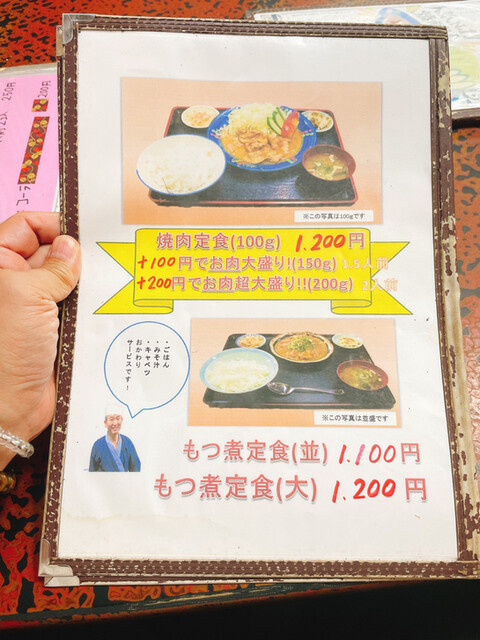 ※この写真は100gです
焼肉定食(100g) 1.200円
+100円でお肉大盛り!(150g) 1.5人前
+200円でお肉超大盛り!!(200g) 2人前
・ごはん
・みそ汁
・キャベツ
おかわり
サービスです!
※この写真は並盛です
もつ煮定食(並) 1.100円
もつ煮定食(大) 1.200円
250円
200円
コーラ